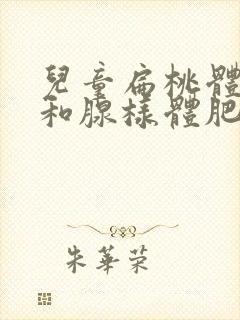 兒童扁桃體
和腺樣體肥
朱華榮